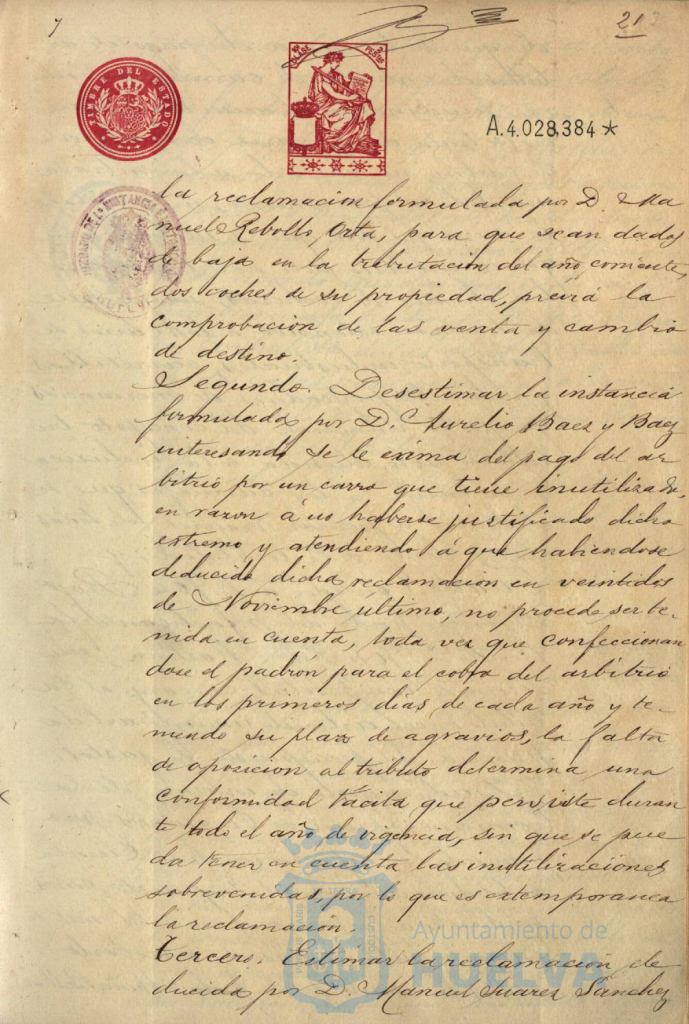 7
21
TIMBRE DEL ESTADO
CLASE
2 PESETAS
A.4.028,384*
la reclamacion formulada por D. Ma
nuel Rebollo Orta, para que sean dados
de baja en la tributacion del año corriente,
dos coches de su propiedad, previa la
comprobacion de las venta y cambio
de destino.
Segundo. Desestimar la instancia
formulada por D. Aurelio Baez y Baez
interesando se le exima del pago del ar
bitrio por un carro que tiene inutilizado,
en razon á no haberse justificado dicho
extremo y atendiendo á que habiendose
deducido dicha reclamacion en veintidos
de Noviembre último, no procede ser te-
nida en cuenta, toda vez que confeccionan
dose el padrón para el cobro del arbitrio
en los primeros dias de cada año y te-
niendo su plazo de agravios, la falta
de oposicion al tributo determina una
conformidad tácita que persiste duran
te todo el año de vigencia, sin que se pue
da tener en cuenta las inutilizaciones
sobrevenidas, por lo que es extemporanea
la reclamación.
Tercero. Estimar la reclamación de
ducida por D. Manuel Suarez Sanchez
Ayuntamiento de
HUELVA